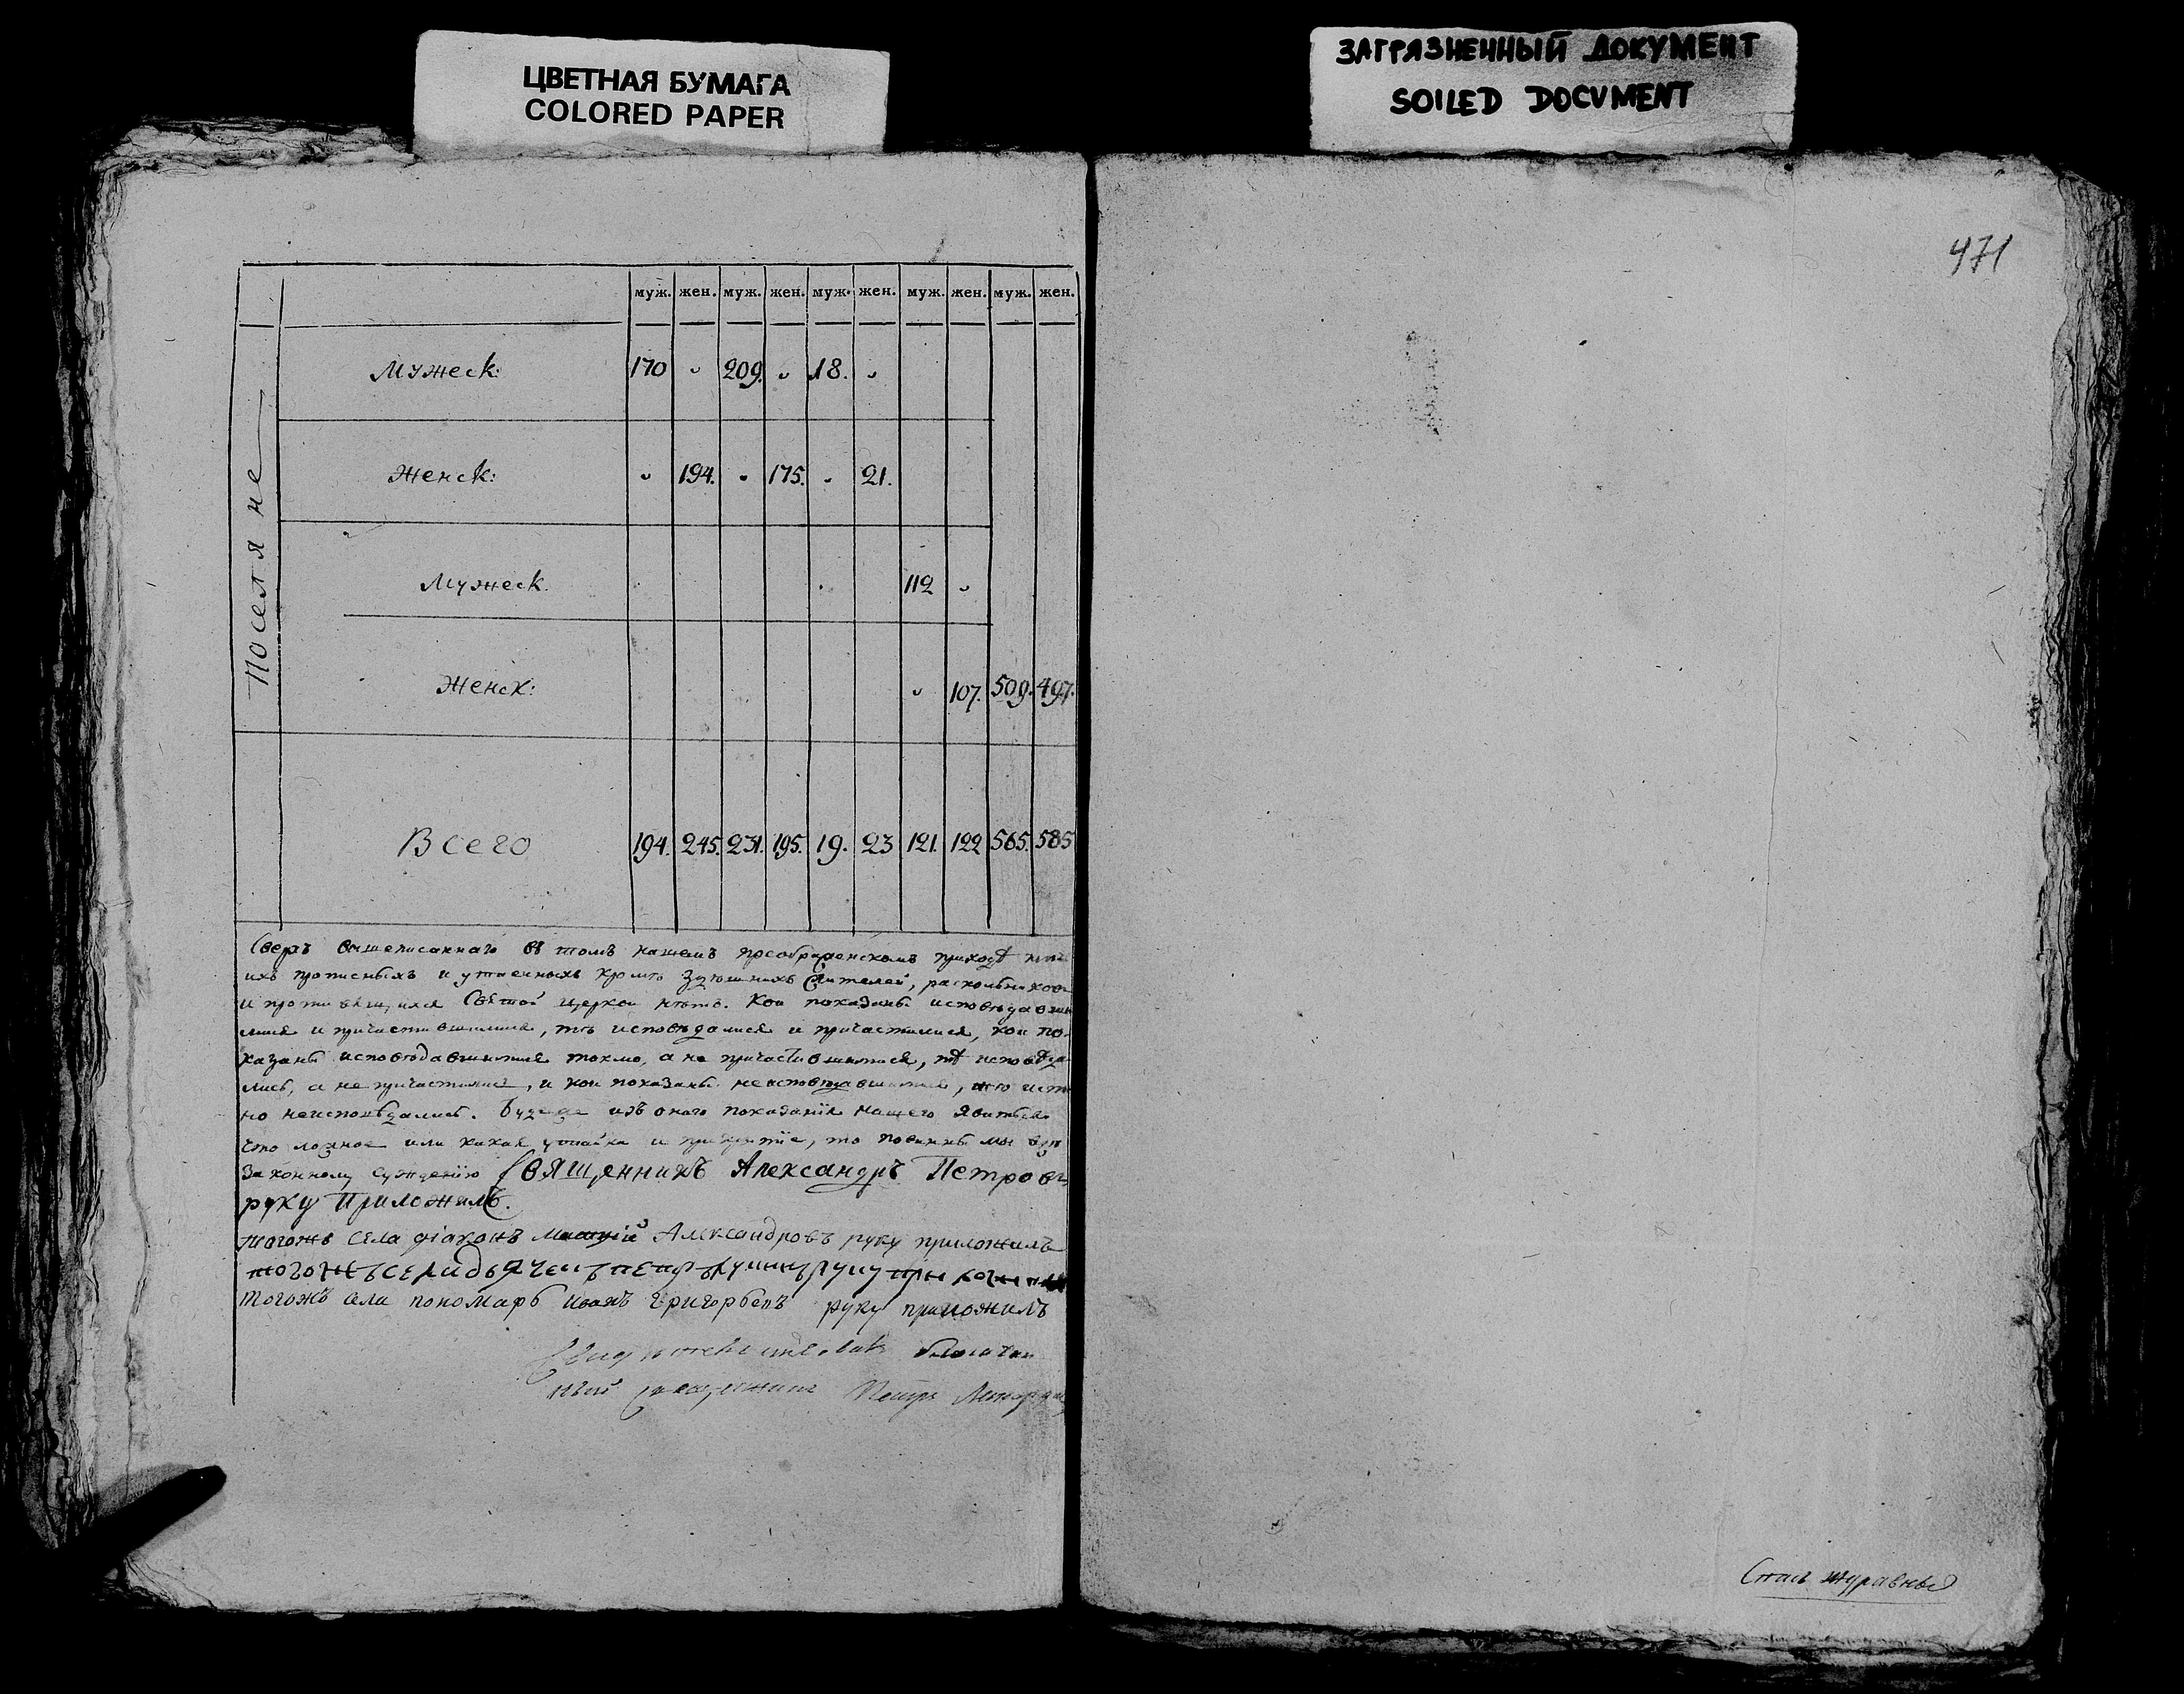 ЦВЕТНАЯ БУМАГА
COLORED PAPER
ЗАГРЯЗНЕННЫЙ ДОКУМЕНТ
SOILED DOCUMENT
471
муж. жен. муж. жен. муж. жен. муж. жен. муж. жен.
Поселяне
Мужеск: 170 209. 18.
Женск: 194. 175. 21.
Мужеск. 112
Женск: 107. 509. 497.
Всего 194. 245. 231. 195. 19. 23 121. 122 565. 585
Сверхъ вышеписаннаго въ томъ нашемъ преображенскомъ приходѣ
ихъ прописныхъ и утаенныхъ кромѣ жителей, раскольниковъ
и противящихся Святой церкви нѣтъ. Кои показаны исповѣдавши
мися и причастившимися, тѣ исповѣдалися и причастилися, кои по
казаны исповѣдавшимися токмо, а не причастившимися, тѣ исповѣда
лись, а не причастились, и кои показаны неисповѣдавшимися,
но неисповѣдались. Буде же изъ онаго показанїя нашего явиться
что ложное или какая утайка и прикрытїе, то повинны мы
законному сужденїю Священникъ Александръ Петровъ
руку Приложилъ.
тогожъ села дїаконъ Александровъ руку приложилъ
тогожъ села дьячекъ руку
тогожъ села пономарь Иванъ Григорьевъ руку приложилъ
Свидѣтельствовалъ благочин
ный священникъ Петръ